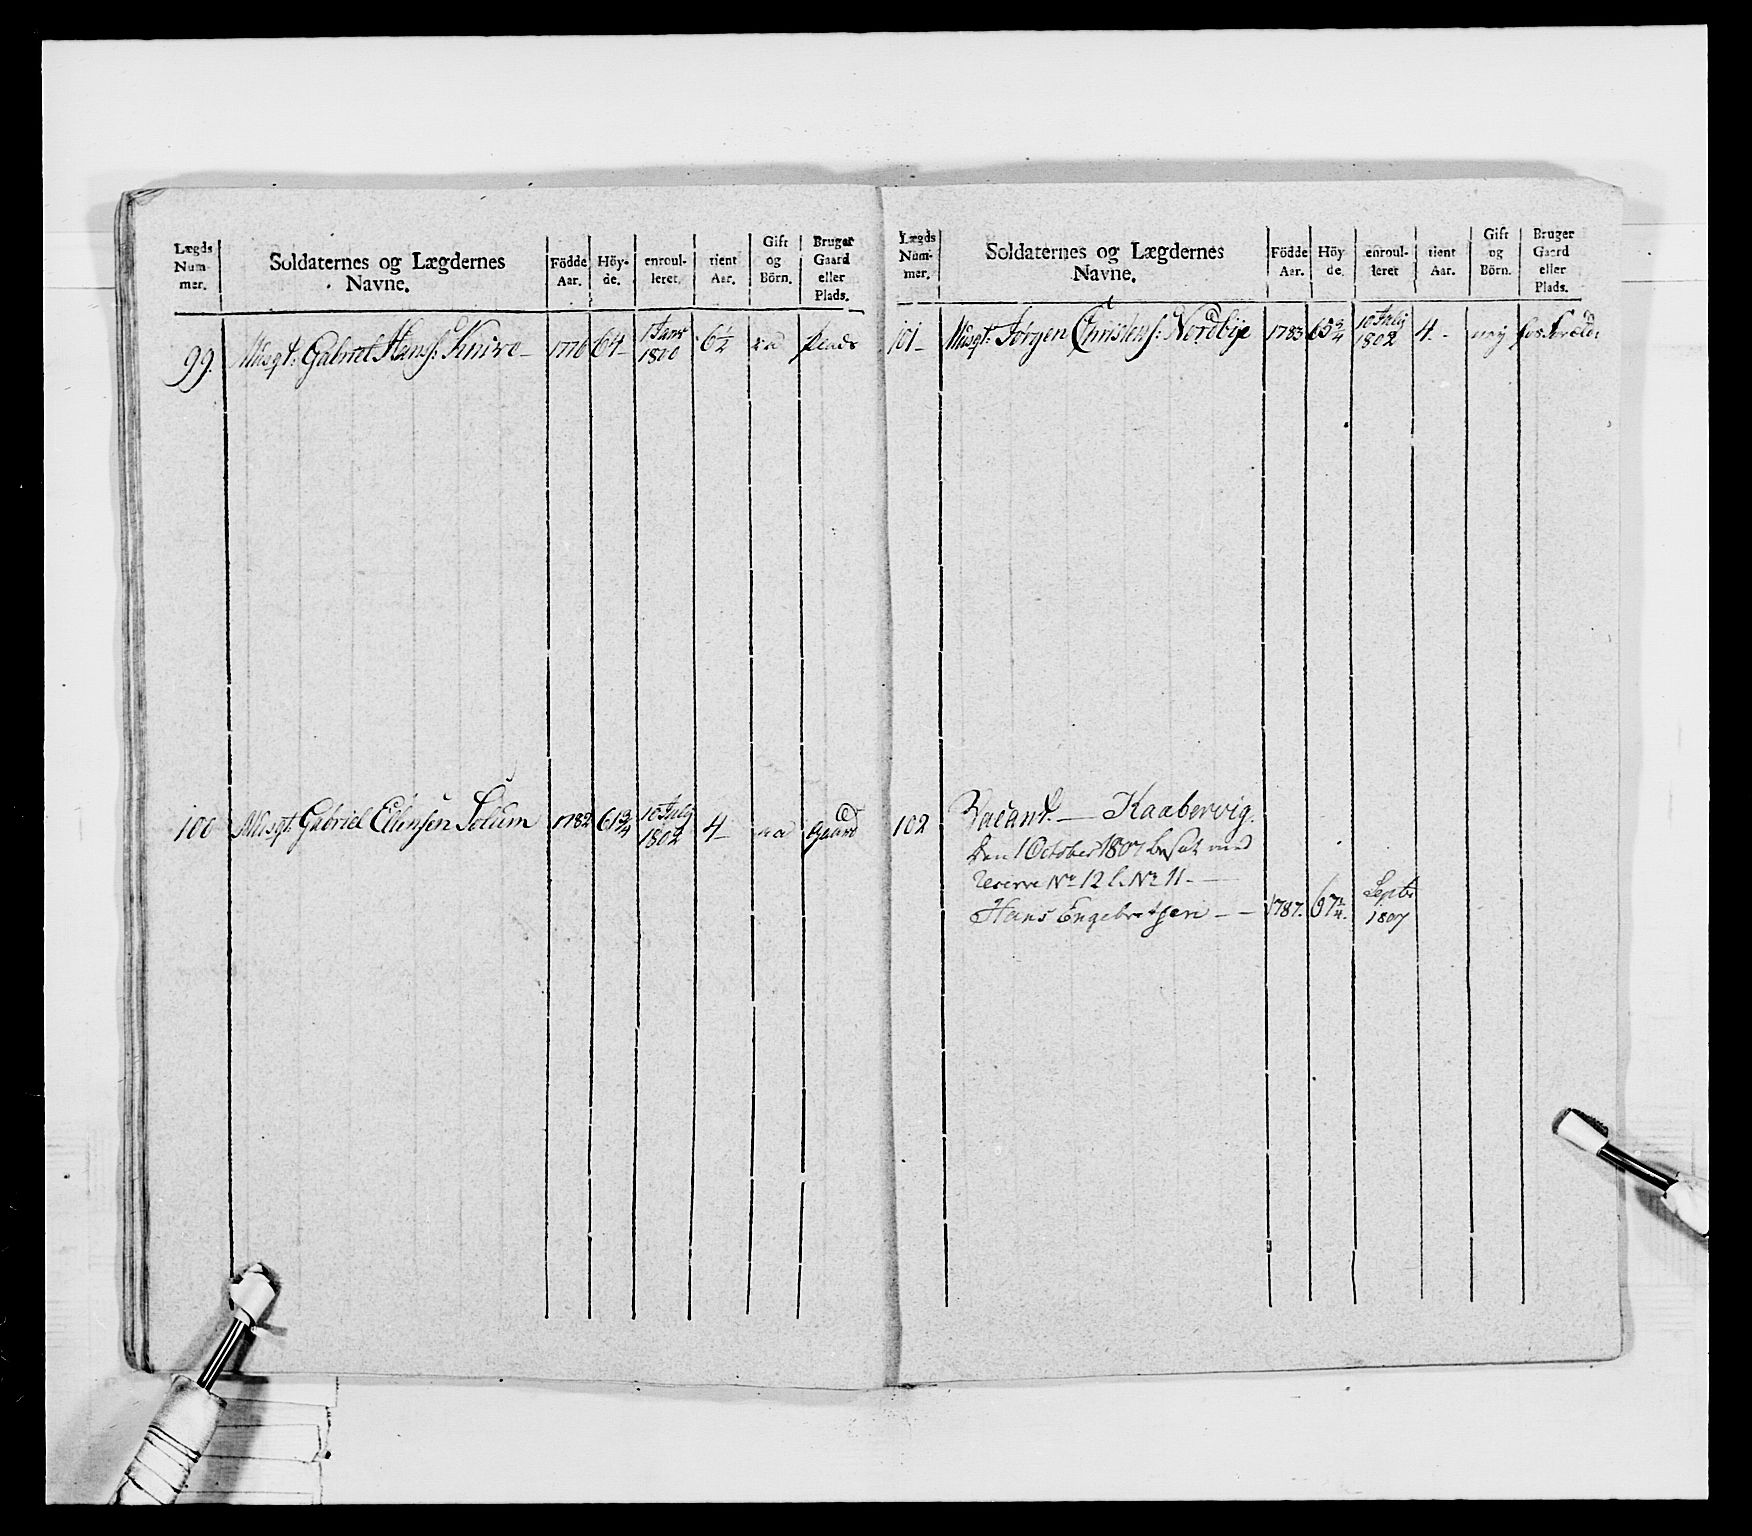 Lægds Num- mer. Soldaternes og Lægdernes Navne. Födde Aar. Höy- de. enroul- leret. tient Aar. Gift og Börn. Bruger Gaard eller Plads.
99. Musqt. Gabriel Hans: Knive 1776 64 1 Janr 1800 6½ Plads
100 Musqt. Gabriel Ellensen Solum 1782 61¾ 10 July 1802 4 Gaard
Lægds Num- mer. Soldaternes og Lægdernes Navne. Födde Aar. Höy- de. enroul- leret tient Aar. Gift og Börn. Bruger Gaard eller Plads.
101 Musqt. Jörgen Christens: Nordbye 1783 65¾ 10 July 1802 4 hos
102 Vacant. Kaabervig.
den 1 October 1807 besat med
reserve No 12 l. No 11
Hans Engebretsen 1787. Septr 1807